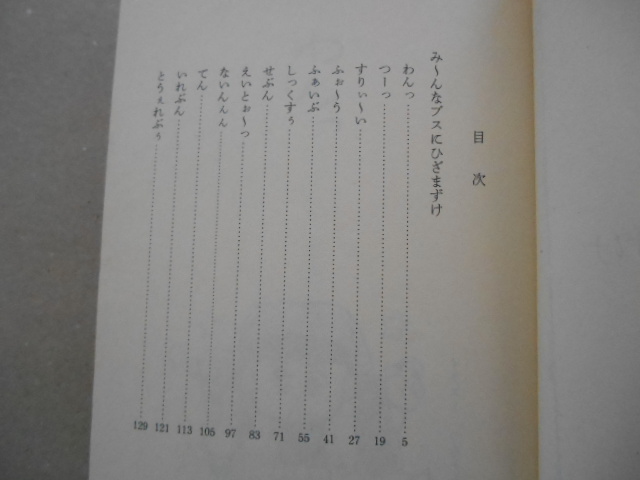 目次
み〜んなブスにひざまずけ
わんっ 5
つーっ 19
すりぃ〜い 27
ふぉ〜う 41
ふぁいぶ 55
しっくすぅ 71
せぶん 83
えいとぉ〜っ 97
ないんんん 105
てん 113
いれぶん 121
とうぇれぶぅ 129